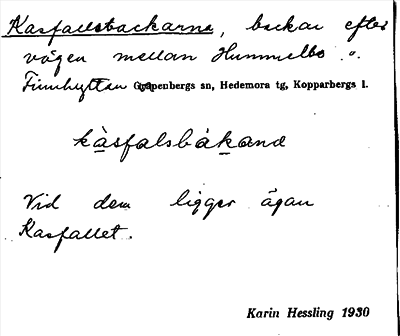 Kasfallsbackarna, backar efter
vägen mellan Hummelbo o.
Finnhyttan Garpenbergs sn, Hedemora tg, Kopparbergs l.
kàsfalsbákanɑ
Vid dem ligger ägan
Kasfallet.
Karin Hessling 1930